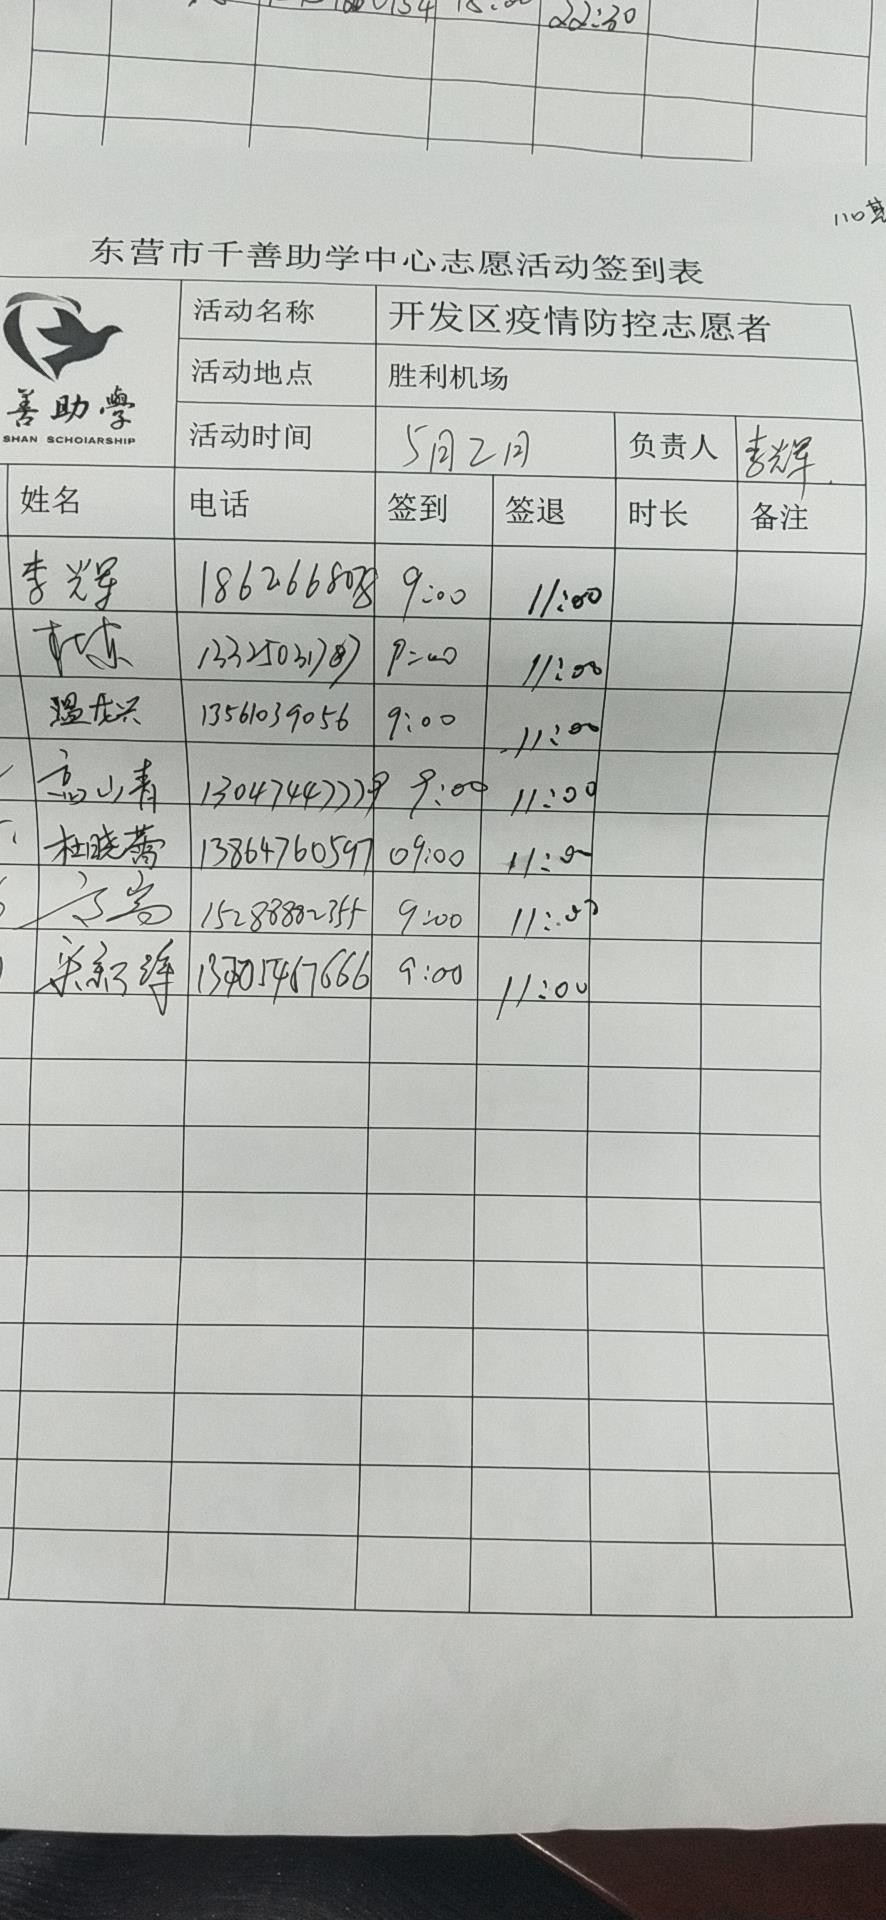 22:30
东营市千善助学中心志愿活动签到表
善助學
SHAN SCHOlARSHIP
活动名称 开发区疫情防控志愿者
活动地点 胜利机场
活动时间 5月2日 负责人 李光军
姓名 电话 签到 签退 时长 备注
李光军 9:00 11:00
9:00 11:00
温龙兴 13561039056 9:00 11:00
高山青 9:00 11:00
杜晓蕾 13864760597 09:00 11:00
高嵩 15288882355 9:00 11:00
9:00 11:00